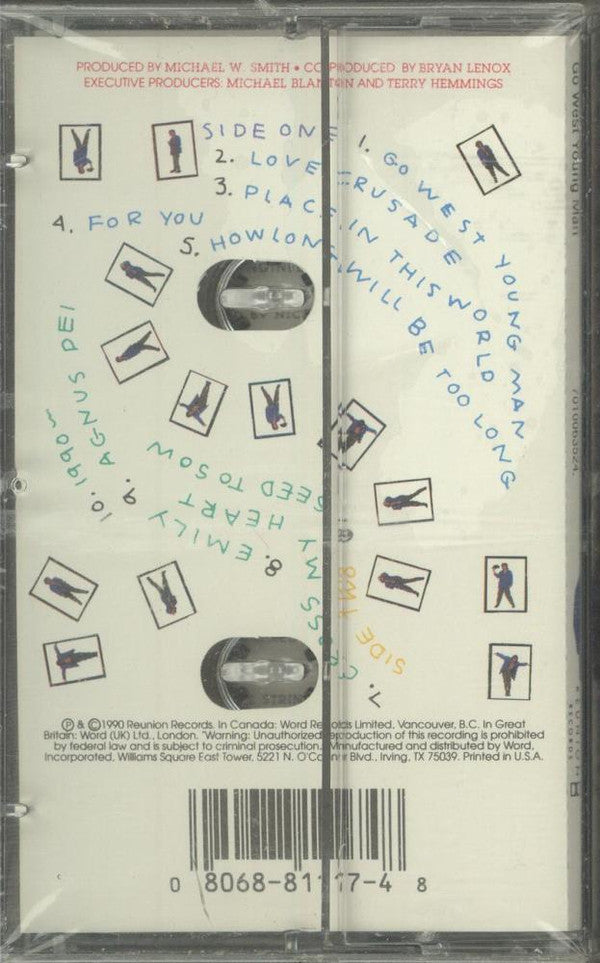 PRODUCED BY MICHAEL W. SMITH • CO-PRODUCED BY BRYAN LENOX
EXECUTIVE PRODUCERS: MICHAEL BLANTON AND TERRY HEMMINGS
SIDE ONE
1. GO WEST YOUNG MAN
2. LOVE CRUSADE
3. PLACE IN THIS WORLD
4. FOR YOU
5. HOW LONG WILL BE TOO LONG
SIDE TWO
SEED TO SOW
7. CROSS MY HEART
8. EMILY
9. AGNUS DEI
10. 1990
Ⓟ & ©1990 Reunion Records. In Canada: Word Records Limited, Vancouver, B.C. In Great
Britain: Word (UK) Ltd., London. "Warning: Unauthorized reproduction of this recording is prohibited
by federal law and is subject to criminal prosecution." Manufactured and distributed by Word,
Incorporated, Williams Square East Tower, 5221 N. O'Connor Blvd., Irving, TX 75039. Printed in U.S.A.
0 8068-81117-4 8
Go West Young Man
REUNION
RECORDS